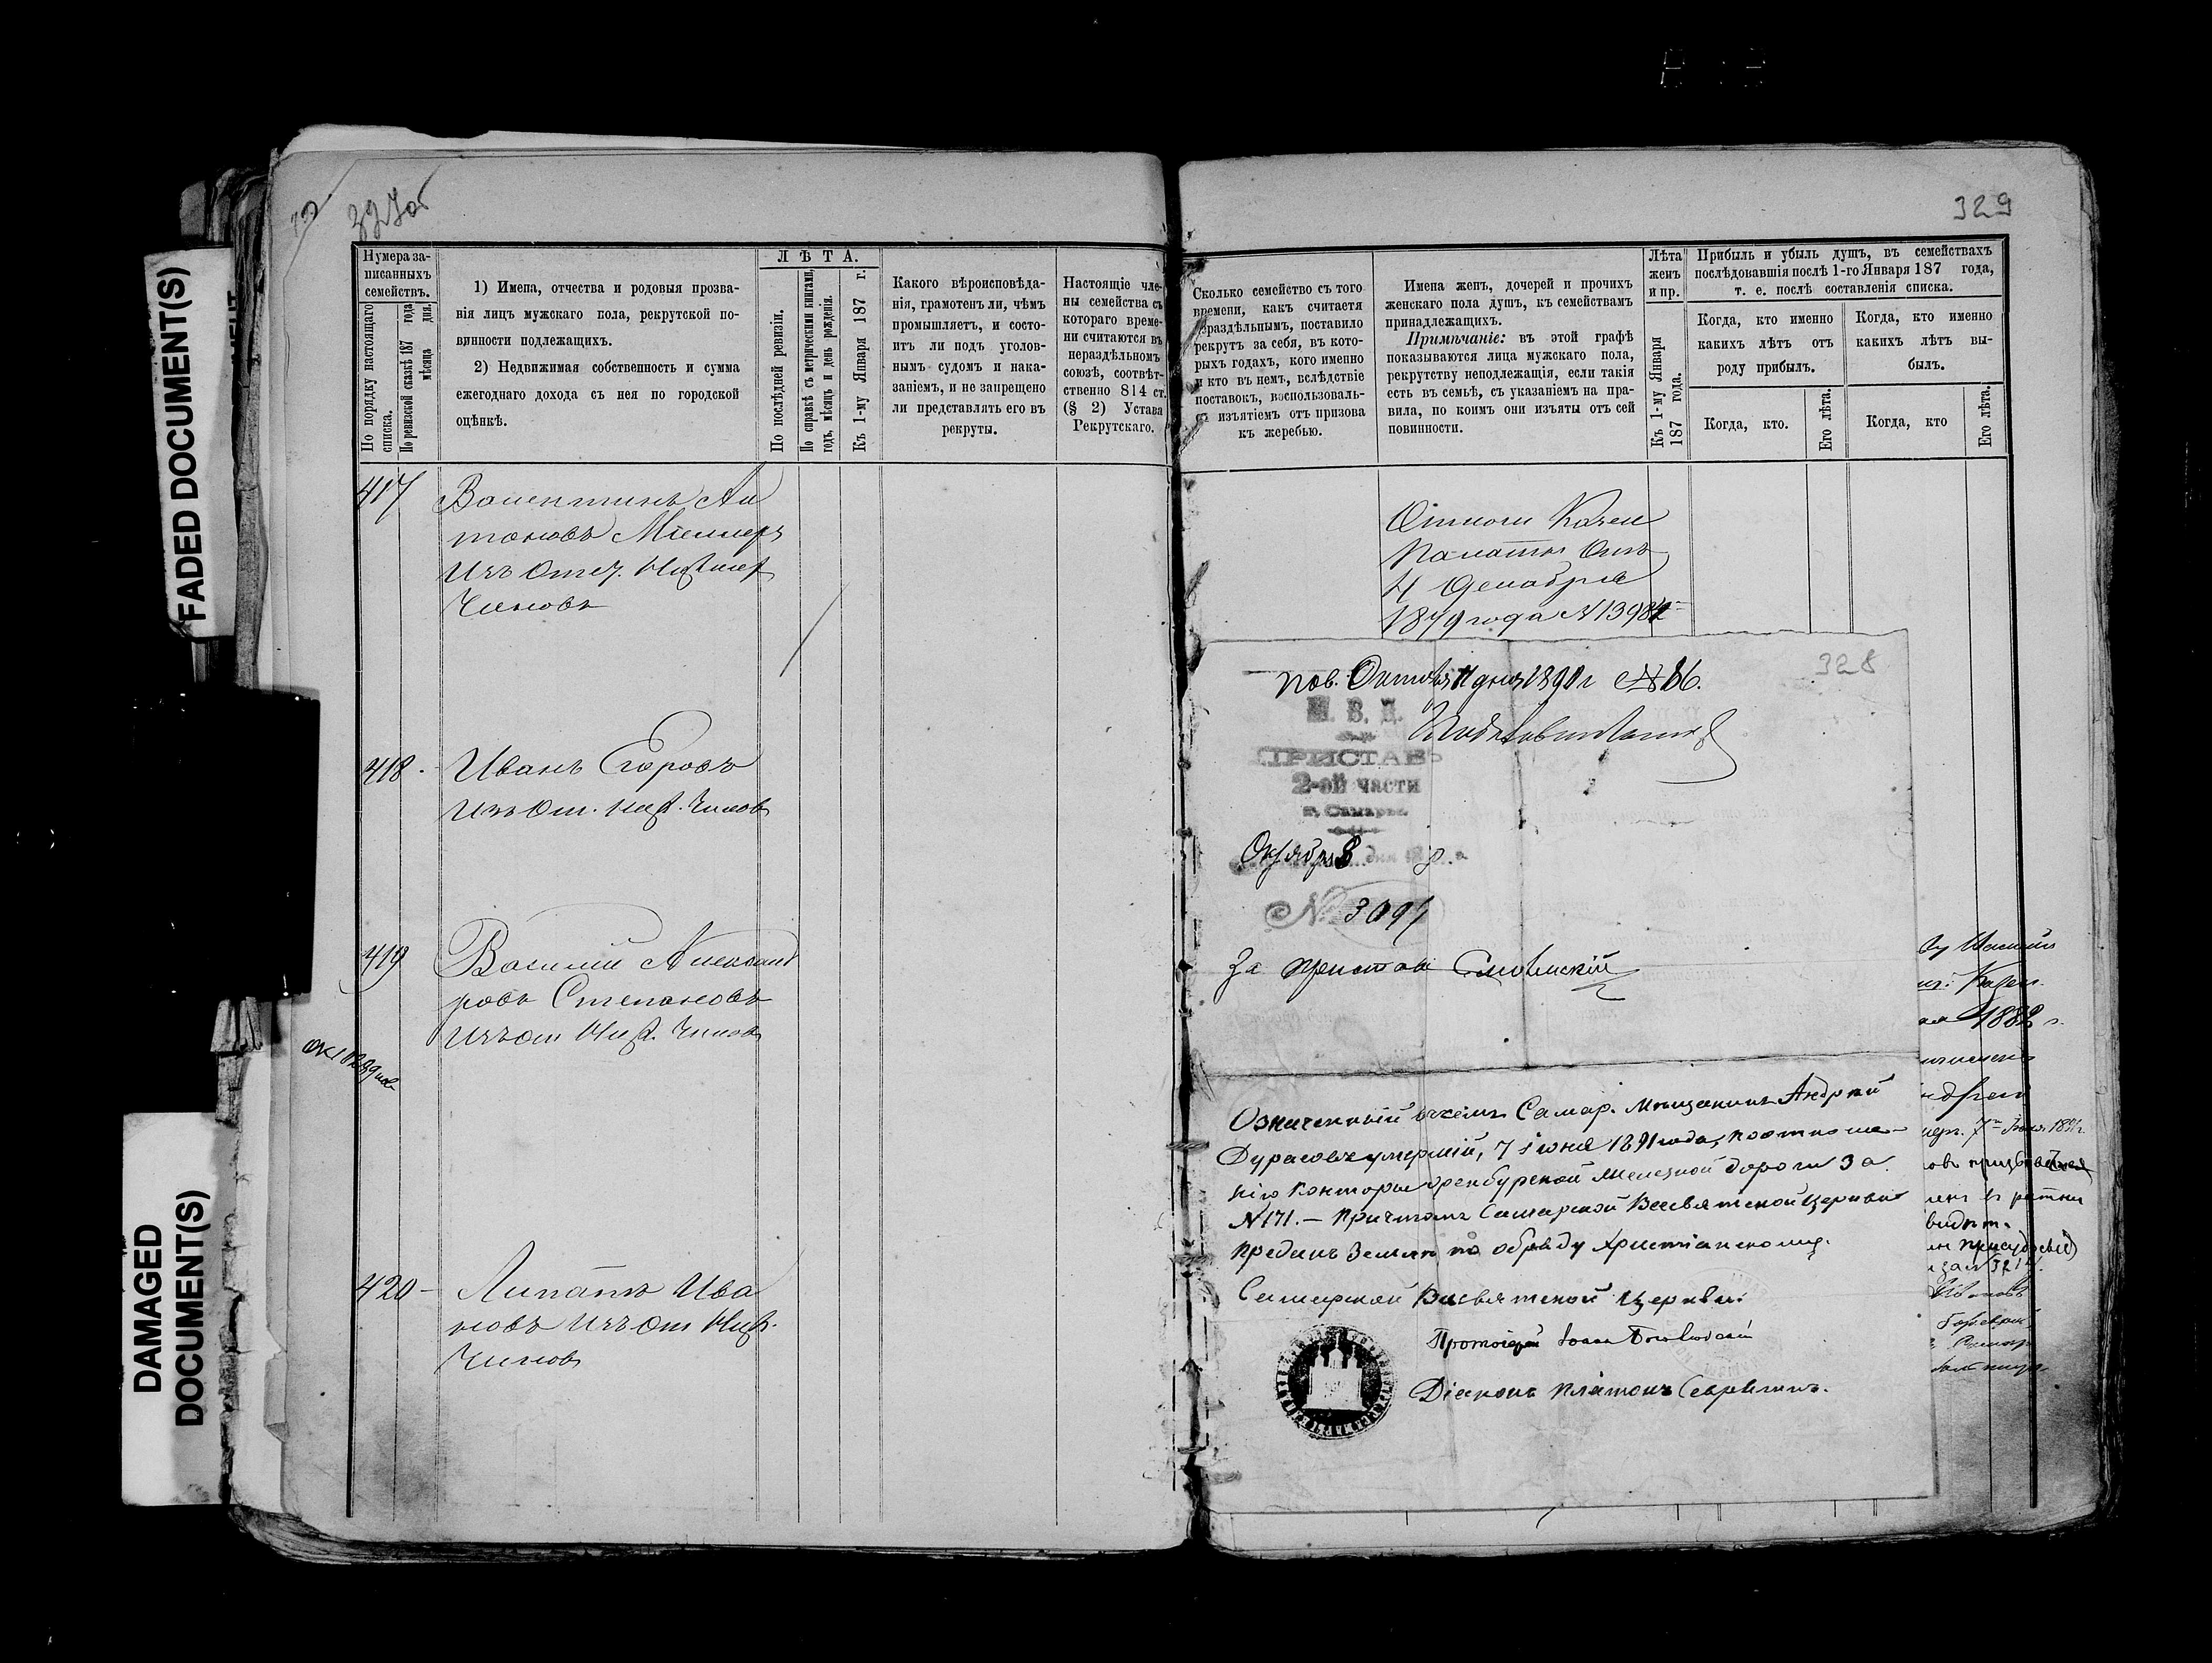 FADED DOCUMENT(S)
DAMAGED
DOCUMENT(S)
327об
Нумера за-
писанныхъ
семействъ.
По порядку настоящаго
списка.
По ревизской сказкѣ 187 года
мѣсяца дня.
1) Имена, отчества и родовыя прозва-
нія лицъ мужскаго пола, рекрутской по-
винности подлежащихъ.
2) Недвижимая собственность и сумма
ежегоднаго дохода съ нея по городской
оцѣнкѣ.
ЛѢТА.
По послѣдней ревизіи.
По справкѣ съ метрическими книгами,
годъ, мѣсяцъ и день рожденія.
Къ 1-му Января 187 г.
Какого вѣроисповѣда-
нія, грамотенъ ли, чѣмъ
промышляетъ, и состо-
итъ ли подъ уголов-
нымъ судомъ и нака-
заніемъ, и не запрещено
ли представлять его въ
рекруты.
Настоящіе чле-
ны семейства съ
котораго време-
ни считаются въ
нераздѣльномъ
союзѣ, соотвѣт-
ственно 814 ст.
(§ 2) Устава
Рекрутскаго.
417 Валентинъ Ан
тоновъ Миллеръ
Изъ Отст. Нижнихъ
Чиновъ
418 - Иванъ Егоровъ
Изъ От. Ниж. Чиновъ
419 Василій Александ
ровъ Степановъ
Изъ От Ниж. Чиновъ
420 - Липатъ Ива
новъ Изъ От Ниж.
Чиновъ
329
Сколько семейство съ того
времени, какъ считается
нераздѣльнымъ, поставило
рекрутъ за себя, въ кото-
рыхъ годахъ, кого именно
и кто въ немъ, вслѣдствіе
поставокъ, воспользоваль-
ся изъятіемъ отъ призова
къ жеребью.
Имена женъ, дочерей и прочихъ
женскаго пола душъ, къ семействамъ
принадлежащихъ.
Примѣчаніе: въ этой графѣ
показываются лица мужскаго пола,
рекрутству неподлежащія, если такія
есть въ семьѣ, съ указаніемъ на пра-
вила, по коимъ они изъяты отъ сей
повинности.
Лѣта
женъ
и пр.
Къ 1-му Января
187 года.
Прибыль и убыль душъ, въ семействахъ
послѣдовавшія послѣ 1-го Января 187 года,
т. е. послѣ составленія списка.
Когда, кто именно
какихъ лѣтъ отъ
роду прибылъ.
Когда, кто.
Его лѣта.
Когда, кто именно
какихъ лѣтъ вы-
былъ.
Когда, кто
Его лѣта.
Отнош Казен
Палаты Отъ
4 Декабря
1879 года №
328
Пов. Октября 11 дня 1891 г № 86.
М. В. Д.
ПРИСТАВЪ
2-ой части
г. Самары.
Октября 8 дня
№
За пристава
Означенный въ семъ Самар. Мѣщанинъ Андрей
Дурасовъ умершій, 7 іюня 1891 года, по отноше-
нію Конторы Оренбургской Желѣзной дороги за
№ 171. - Причтомъ Самарской Всесвятской Церкви
преданъ Землѣ по обряду Христіанскому.
Самарской Всесвятской Церкви
Протоіерей Іоаннъ
Діаконъ Платонъ
1882 г.